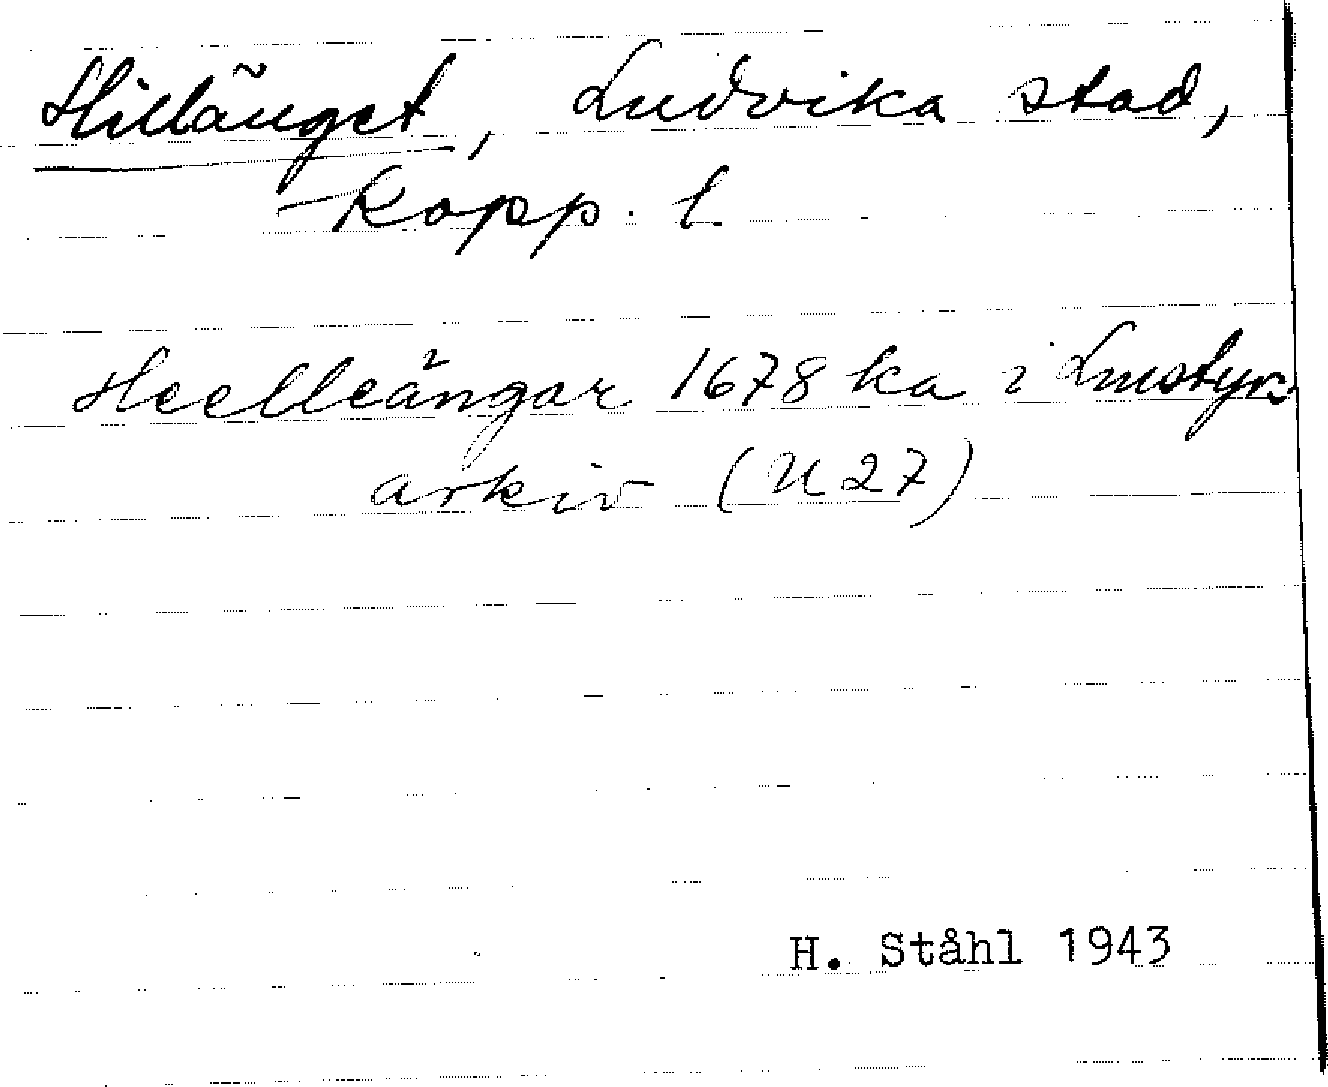 Hillänget, Ludvika stad,
Kopp. l.
Heelleängar 1678 ka i Lmstyrs
arkiv (U 27)
H. Ståhl 1943